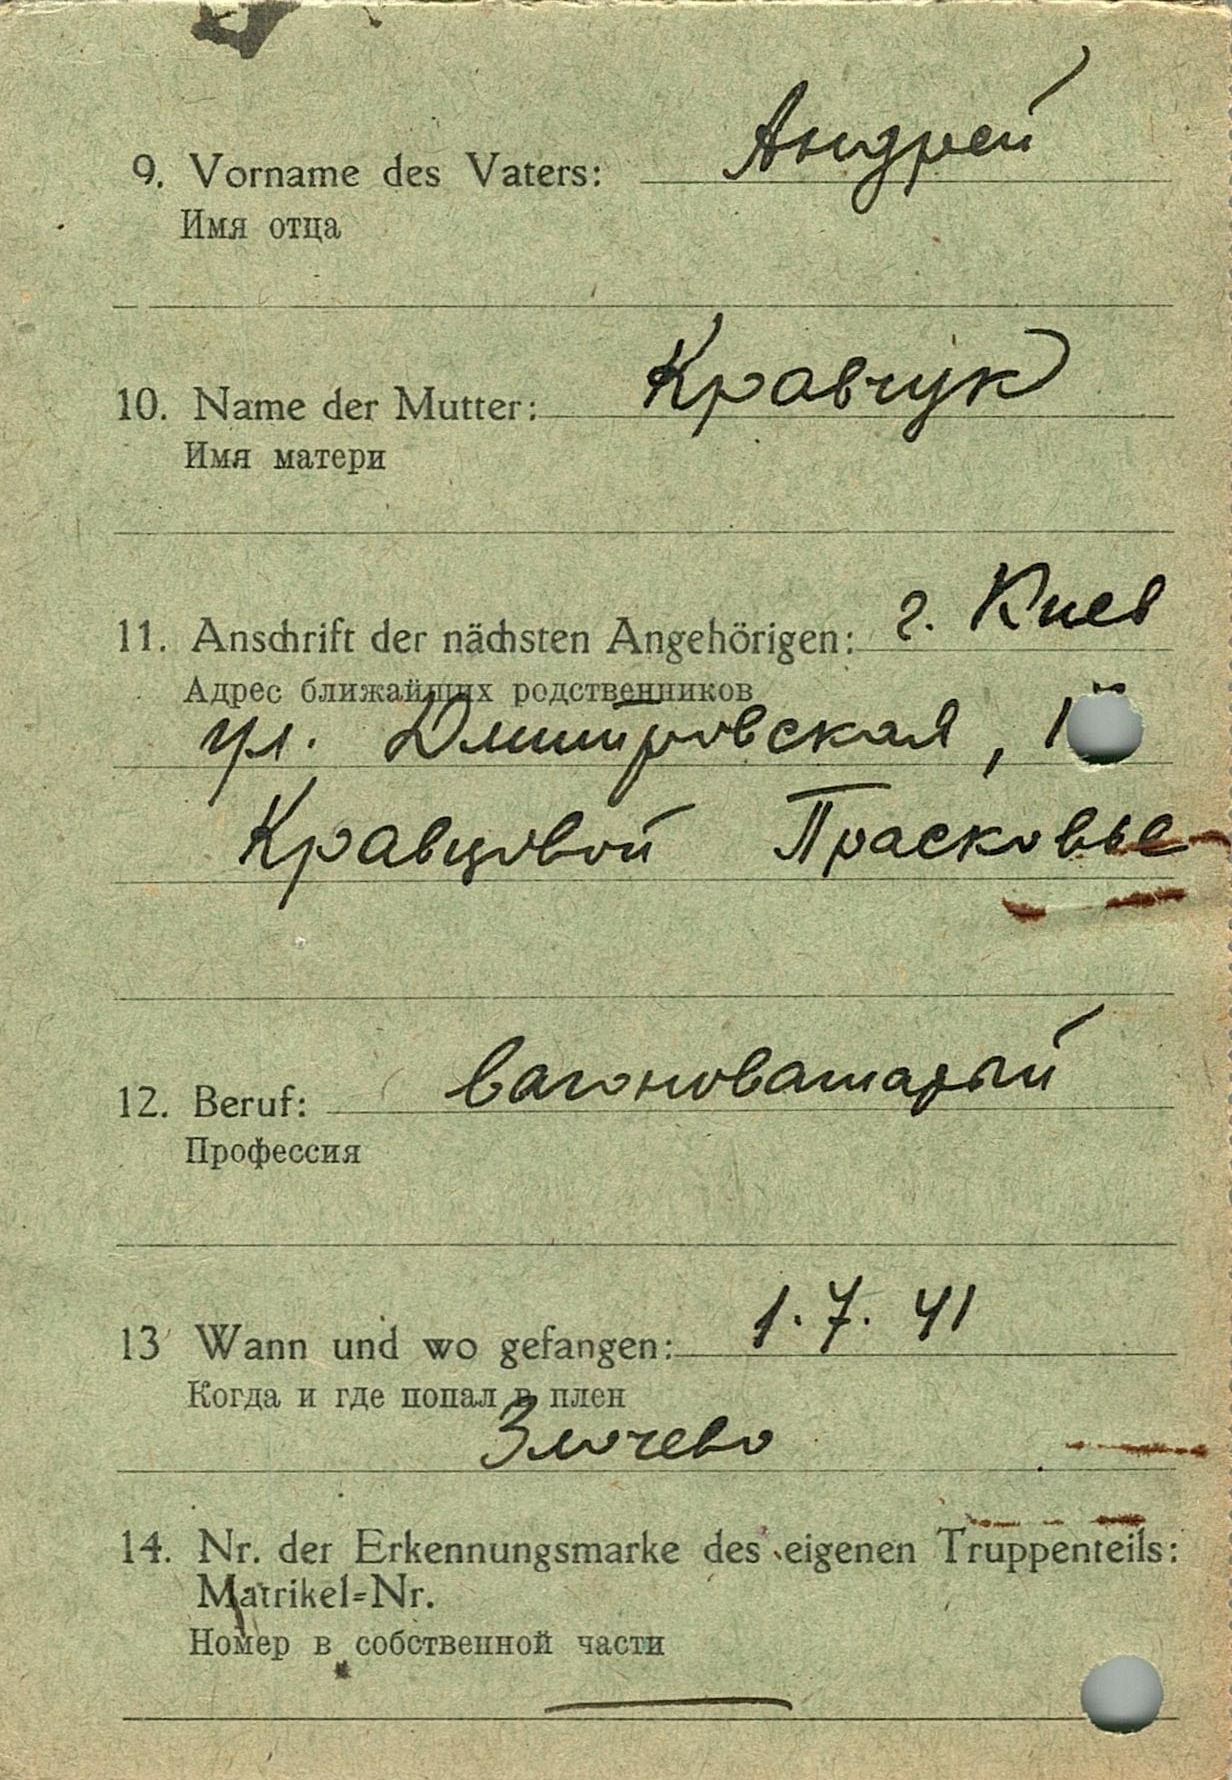 9. Vorname des Vaters: Андрей
Имя отца
10. Name der Mutter: Кравчук
Имя матери
11. Anschrift der nächsten Angehörigen: г. Киев
Адрес ближайших родственников
ул. Дмитровская, 1
Кравцовой Прасковье
12. Beruf: вагоноватарый
Профессия
13 Wann und wo gefangen: 1.7.41
Когда и где попал в плен
Злочево
14. Nr. der Erkennungsmarke des eigenen Truppenteils:
Matrikel-Nr.
Номер в собственной части